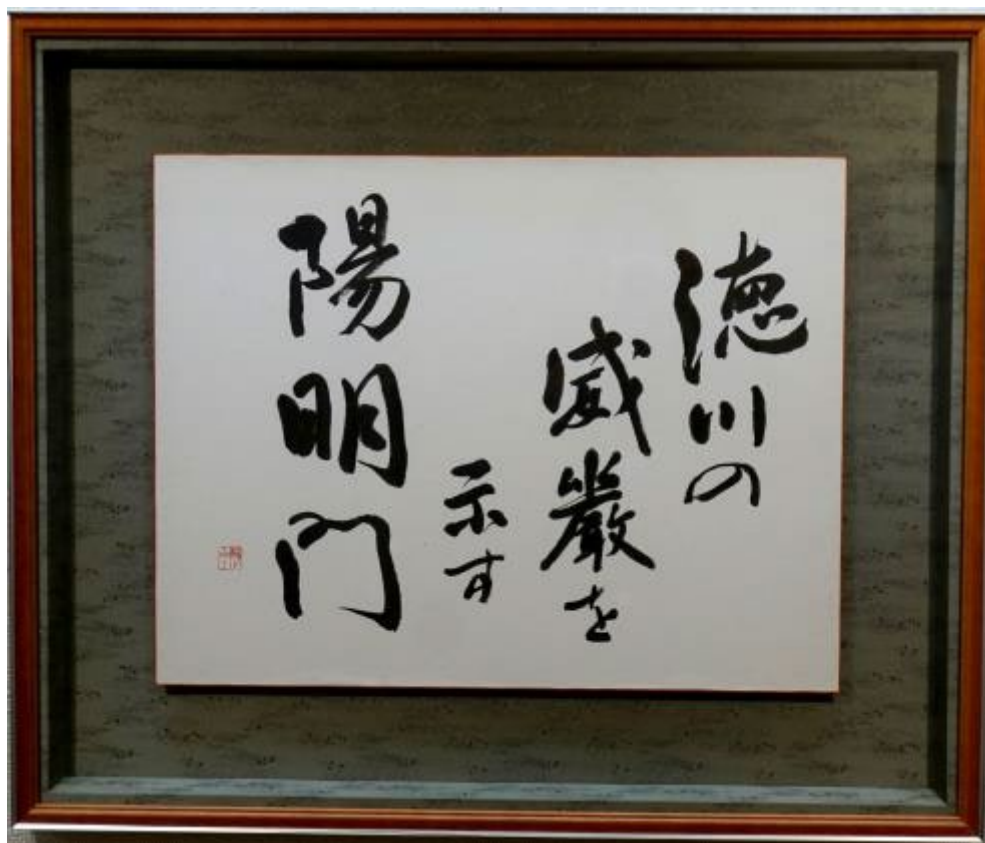 徳川の
威厳を
示す
陽明門